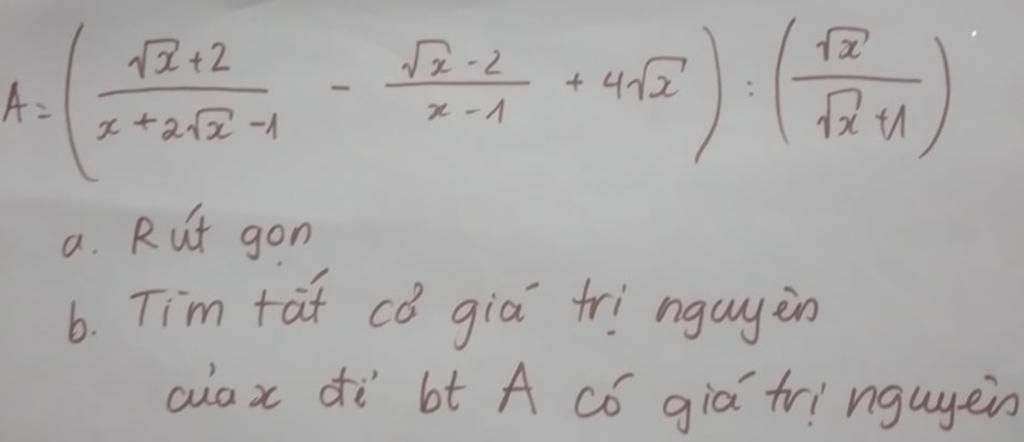 A = ( (√x + 2)/(x + 2√x - 1) - (√x - 2)/(x - 1) + 4√x ) : ( √x/(√x + 1) )
a. Rút gọn
b. Tìm tất cả giá trị nguyên
của x để bt A có giá trị nguyên